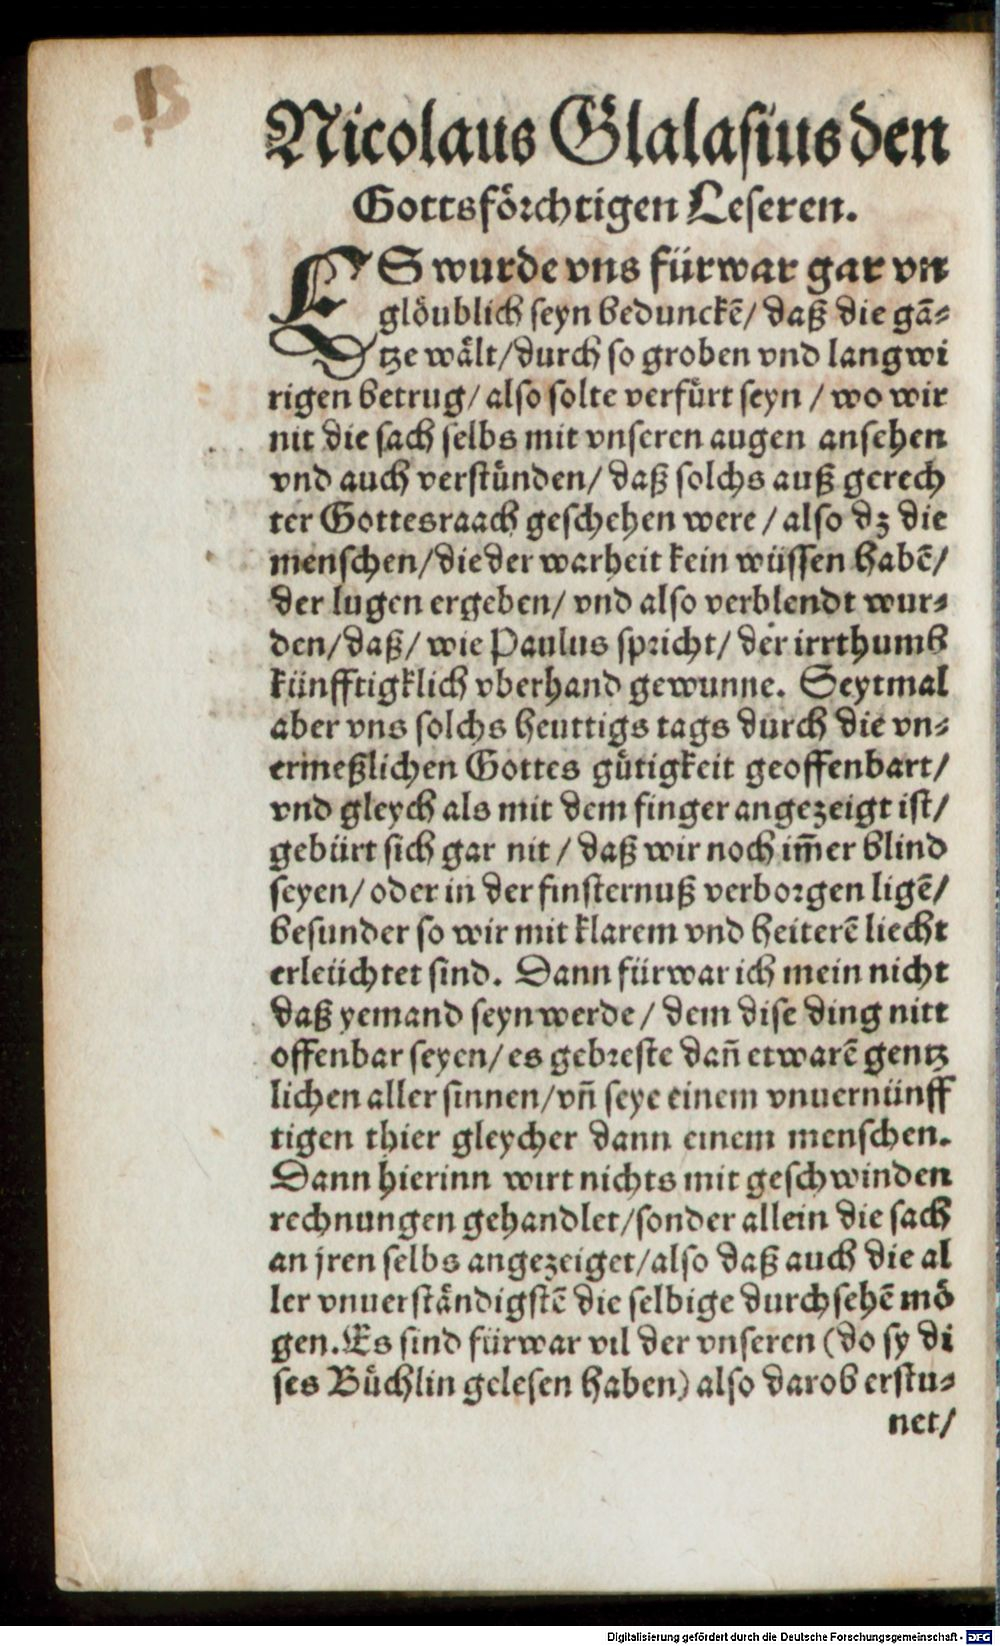 Nicolaus Glalasius den
Gottsförchtigen Leseren.
ES wurde vns fürwar gar vn
glöublich seyn bedunckē/ daß die gā-
tze wält/durch so groben vnd langwi
rigen betrug/ also solte verfürt seyn / wo wir
nit die sach selbs mit vnseren augen ansehen
vnd auch verstünden/ daß solchs auß gerech
ter Gottesraach geschehen were / also dz die
menschen/die der warheit kein wüssen habē/
der lugen ergeben/ vnd also verblendt wur-
den/daß/ wie Paulus spricht/ der irrthumb
künfftigklich vberhand gewunne. Seytmal
aber vns solchs heuttigs tags durch die vn-
ermeßlichen Gottes gütigkeit geoffenbart/
vnd gleych als mit dem finger angezeigt ist/
gebürt sich gar nit / daß wir noch im̄er blind
seyen/ oder in der finsternuß verborgen ligē/
besunder so wir mit klarem vnd heiterē liecht
erleüchtet sind. Dann fürwar ich mein nicht
daß yemand seyn werde / dem dise ding nitt
offenbar seyen/ es gebreste dañ etwarē gentz
lichen aller sinnen/vñ seye einem vnuernünff
tigen thier gleycher dann einem menschen.
Dann hierinn wirt nichts mit geschwinden
rechnungen gehandlet/sonder allein die sach
an jren selbs angezeiget/also daß auch die al
ler vnuerständigstē die selbige durchsehē mö
gen. Es sind fürwar vil der vnseren (do sy di
ses Büchlin gelesen haben) also darob erstu-
net/
Digitalisierung gefördert durch die Deutsche Forschungsgemeinschaft - DFG